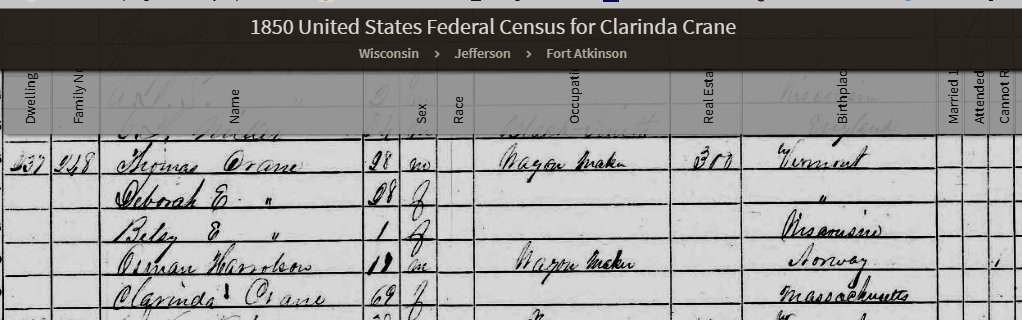 1850 United States Federal Census for Clarinda Crane
Wisconsin > Jefferson > Fort Atkinson
Dwelling Family Name Sex Race Occupati Real Esta Birthplac Married 1 Attended Cannot R
Wisconsin
England
237 248 Thomas Crane 28 m Wagon Maker 300 Vermont
Deborah E " 28 f "
Betsy E " 1 f Wisconsin
19 m Wagon Maker Norway 1
Clarinda Crane 69 f Massachusetts